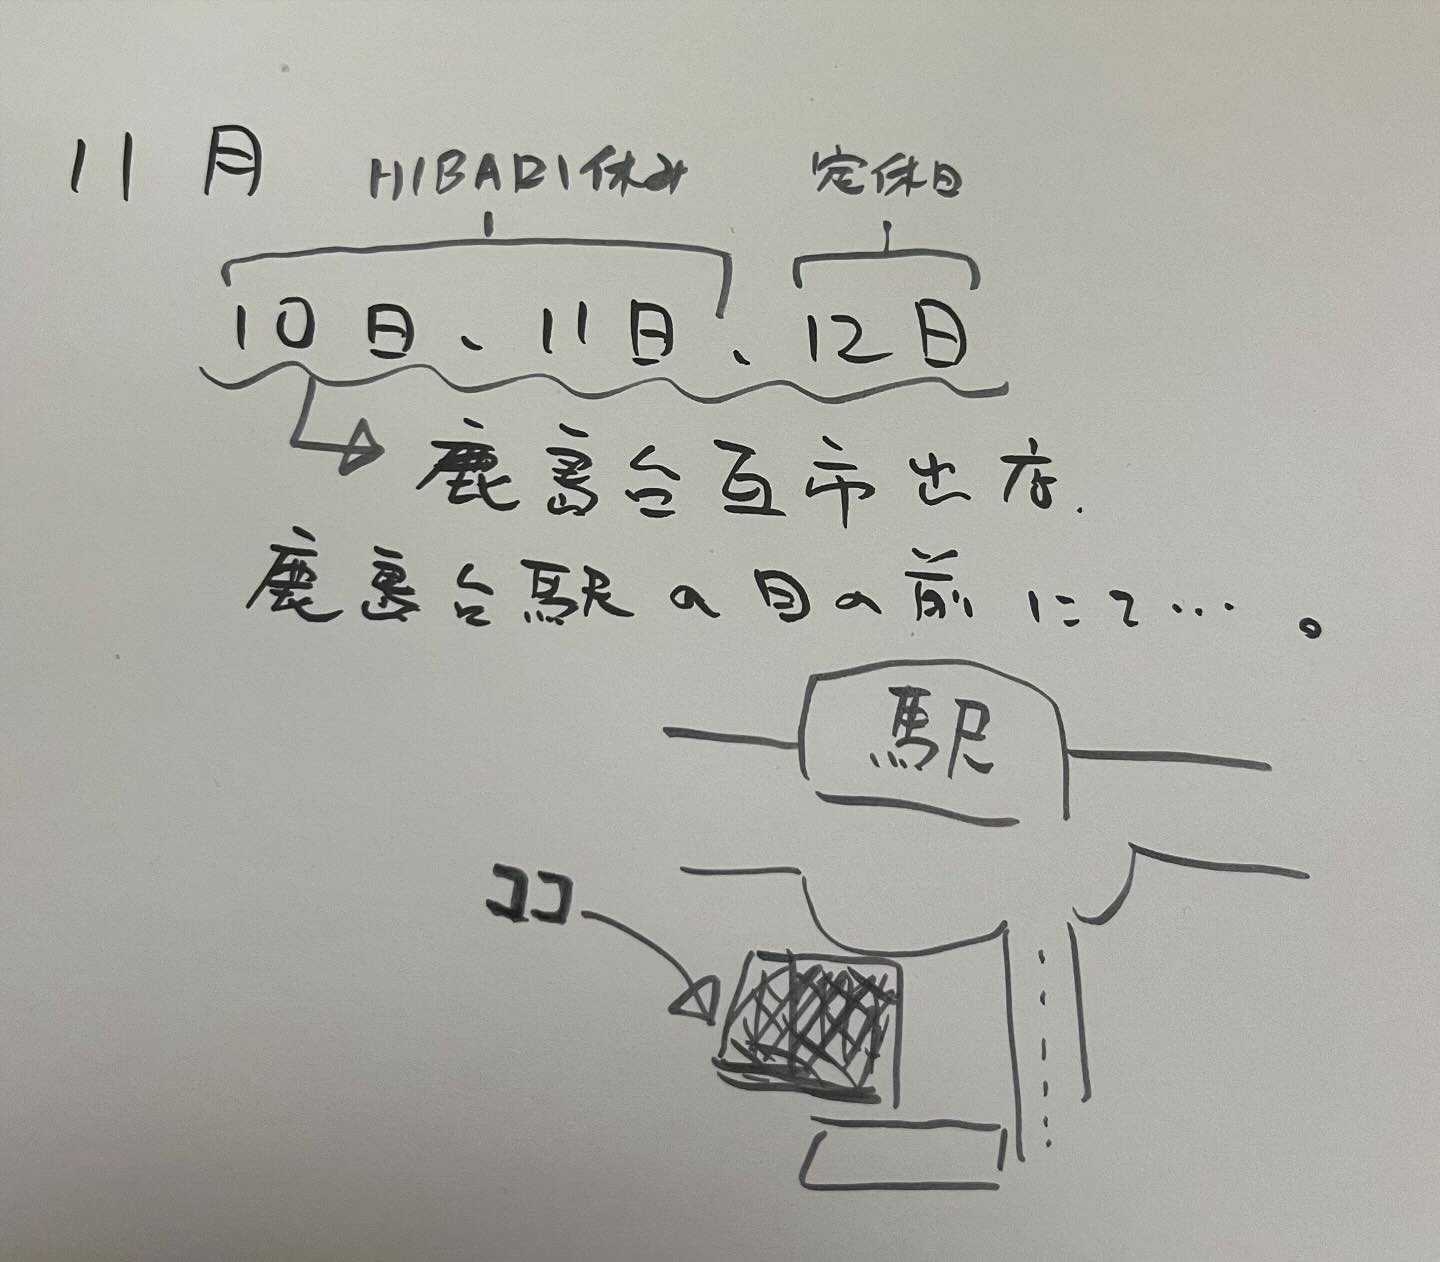 11月
HIBARI休み
定休日
10日、11日、12日
鹿島台互市出店.
鹿島台駅の目の前にて…。
駅
ココ